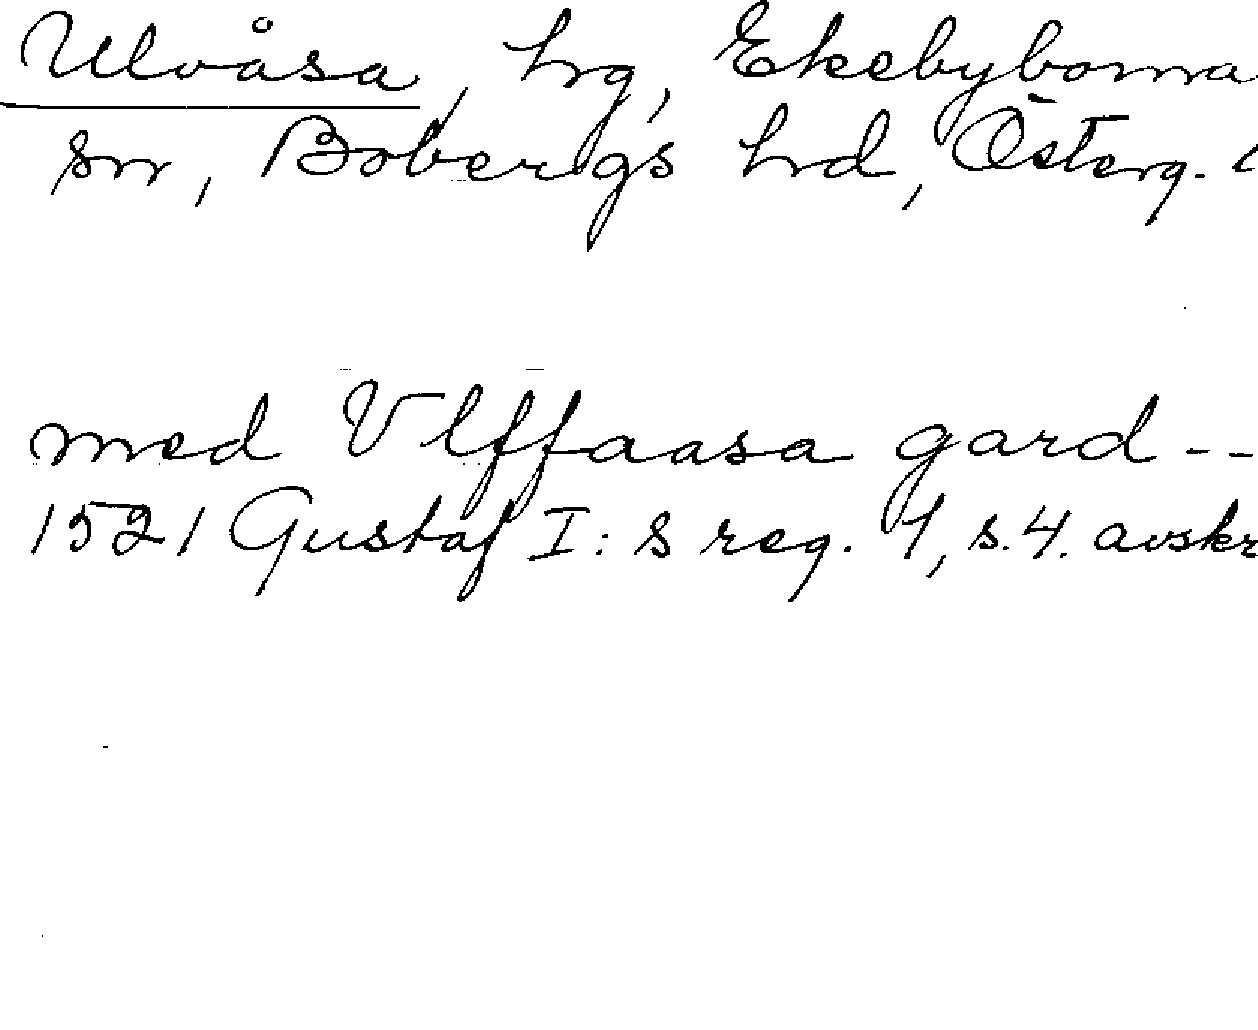 Ulvåsa, hrg, Ekebyborna
sn, Bobergs hrd, Österg.
med Vlffaasa gard --
1521 Gustaf I:s reg. 1, s. 4. avskr